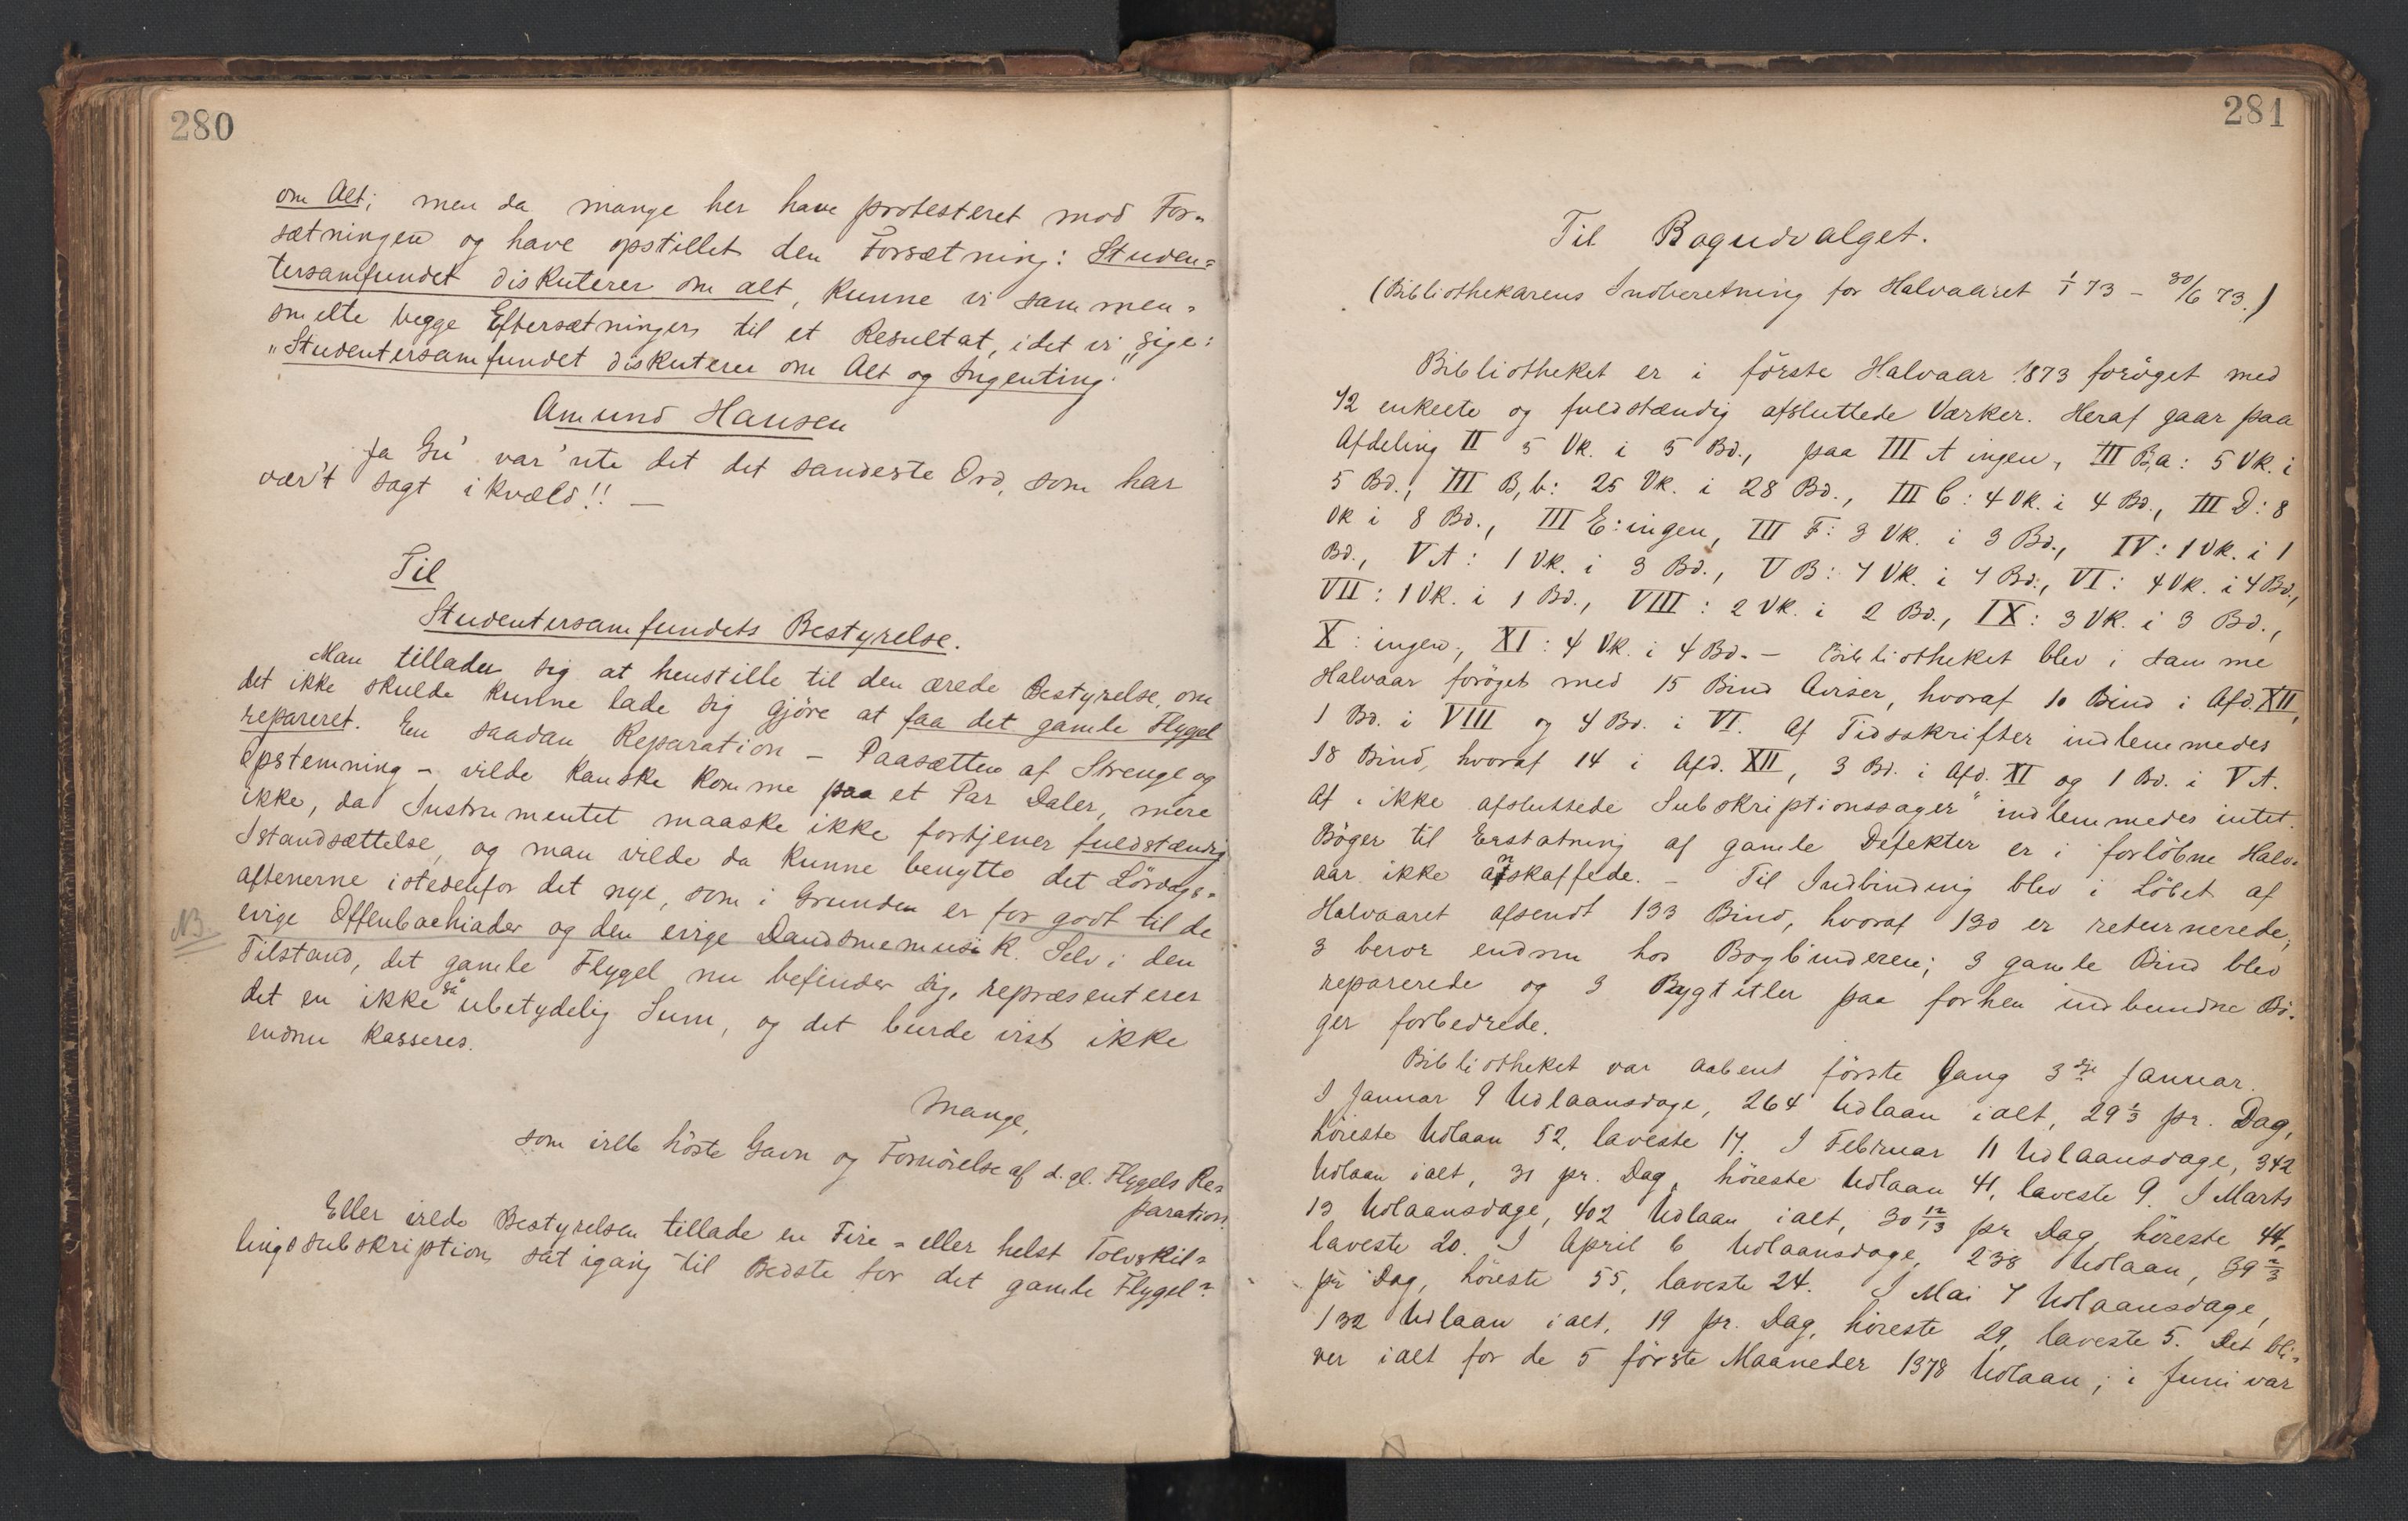 280
om Alt; men da mange her have protesteret mod For-
sætningen og have opstillet den Forsætning: Studen-
tersamfundet diskuterer om alt, kunne vi sammen-
smelte begge Eftersætninger til et Resultat, idet vi sige:
"Studentersamfundet diskuterer om Alt og Ingenting."
Amund Hansen
Ja Gu' var'nte det det sandeste Ord, som har
vær't sagt ikvæld!! —
Til
Studentersamfundets Bestyrelse.
Man tillader sig at henstille til den ærede Bestyrelse, om
det ikke skulde kunne lade sig gjöre at faa det gamle Flygel
repareret. En saadan Reparation – Paasætten af Strenge og
Opstemning – vilde kanske komme paa et Par Daler, mere
ikke, da Instrumentet maaske ikke fortjener fuldstændig
Istandsættelse, og man vilde da kunne benytte det Lördags-
aftenerne istedenfor det nye, som i Grunden er for godt til de
NB.
evige Offenbachiader og den evige Dandsemusik. Selv i den
Tilstand, det gamle Flygel nu befinder sig, repræsenterer
det en ikke så ubetydelig Sum, og det burde vist ikke
endnu kasseres.
Mange,
som vilde höste Gavn og Fornöielse af d. gl. Flygels Re-
paration.
Eller vilde Bestyrelsen tillade en Fire- eller helst Tolvskil-
lingssubskription sat igang til Bedste for det gamle Flygel?
281
Til Bogudvalget.
(Bibliothekarens Indberetning for Halvaaret 1/1 73 – 30/6 73.)
Bibliotheket er i förste Halvaar 1873 foröget med
72 enkelte og fuldstændig afsluttede Værker. Heraf gaar paa
Afdeling II 5 Vk. i 5 Bd., paa III A ingen, III B,a: 5 Vk. i
5 Bd., III B,b: 25 Vk. i 28 Bd., III C: 4 Vk. i 4 Bd., III D: 8
Vk i 8 Bd., III E: ingen, III F: 3 Vk. i 3 Bd., IV: 1 Vk. i 1
Bd., V A: 1 Vk. i 3 Bd., V B: 7 Vk. i 7 Bd., VI: 4 Vk. i 4 Bd.,
VII: 1 Vk. i 1 Bd., VIII: 2 Vk. i 2 Bd., IX: 3 Vk. i 3 Bd.,
X: ingen, XI: 4 Vk. i 4 Bd. – Bibliotheket blev i samme
Halvaar foröget med 15 Bind Aviser, hvoraf 10 Bind i Afd. XII,
1 Bd. i VIII og 4 Bd. i VI. Af Tidsskrifter indlemmedes
18 Bind, hvoraf 14 i Afd. XII, 3 Bd. i Afd. XI og 1 Bd. i V A.
Af "ikke afsluttede Subskriptionssager" indlemmedes intet.
Böger til Erstatning af gamle Defekter er i forlöbne Halv-
aar ikke anskaffede. – Til Indbinding blev i Löbet af
Halvaaret afsendt 133 Bind, hvoraf 130 er returnerede,
3 beror endnu hos Bogbinderen; 3 gamle Bind blev
reparerede og 3 Rygtitler paa forhen indbundne Bö-
ger forbedrede.
Bibliotheket var aabent förste Gang 3die Januar.
I Januar 9 Udlaansdage, 264 Udlaan ialt, 29 1/3 pr. Dag,
höieste Udlaan 52, laveste 17. I Februar 11 Udlaansdage, 342
Udlaan ialt, 31 pr. Dag, höieste Udlaan 41, laveste 9. I Marts
13 Udlaansdage, 402 Udlaan ialt, 30 12/13 pr Dag, höieste 44,
laveste 20. I April 6 Udlaansdage, 238 Udlaan, 39 2/3
pr Dag, höieste 55, laveste 24. I Mai 7 Udlaansdage,
132 Udlaan ialt, 19 pr. Dag, höieste 29, laveste 5. Det bli-
ver ialt for de 5 förste Maaneder 1378 Udlaan; i Juni var